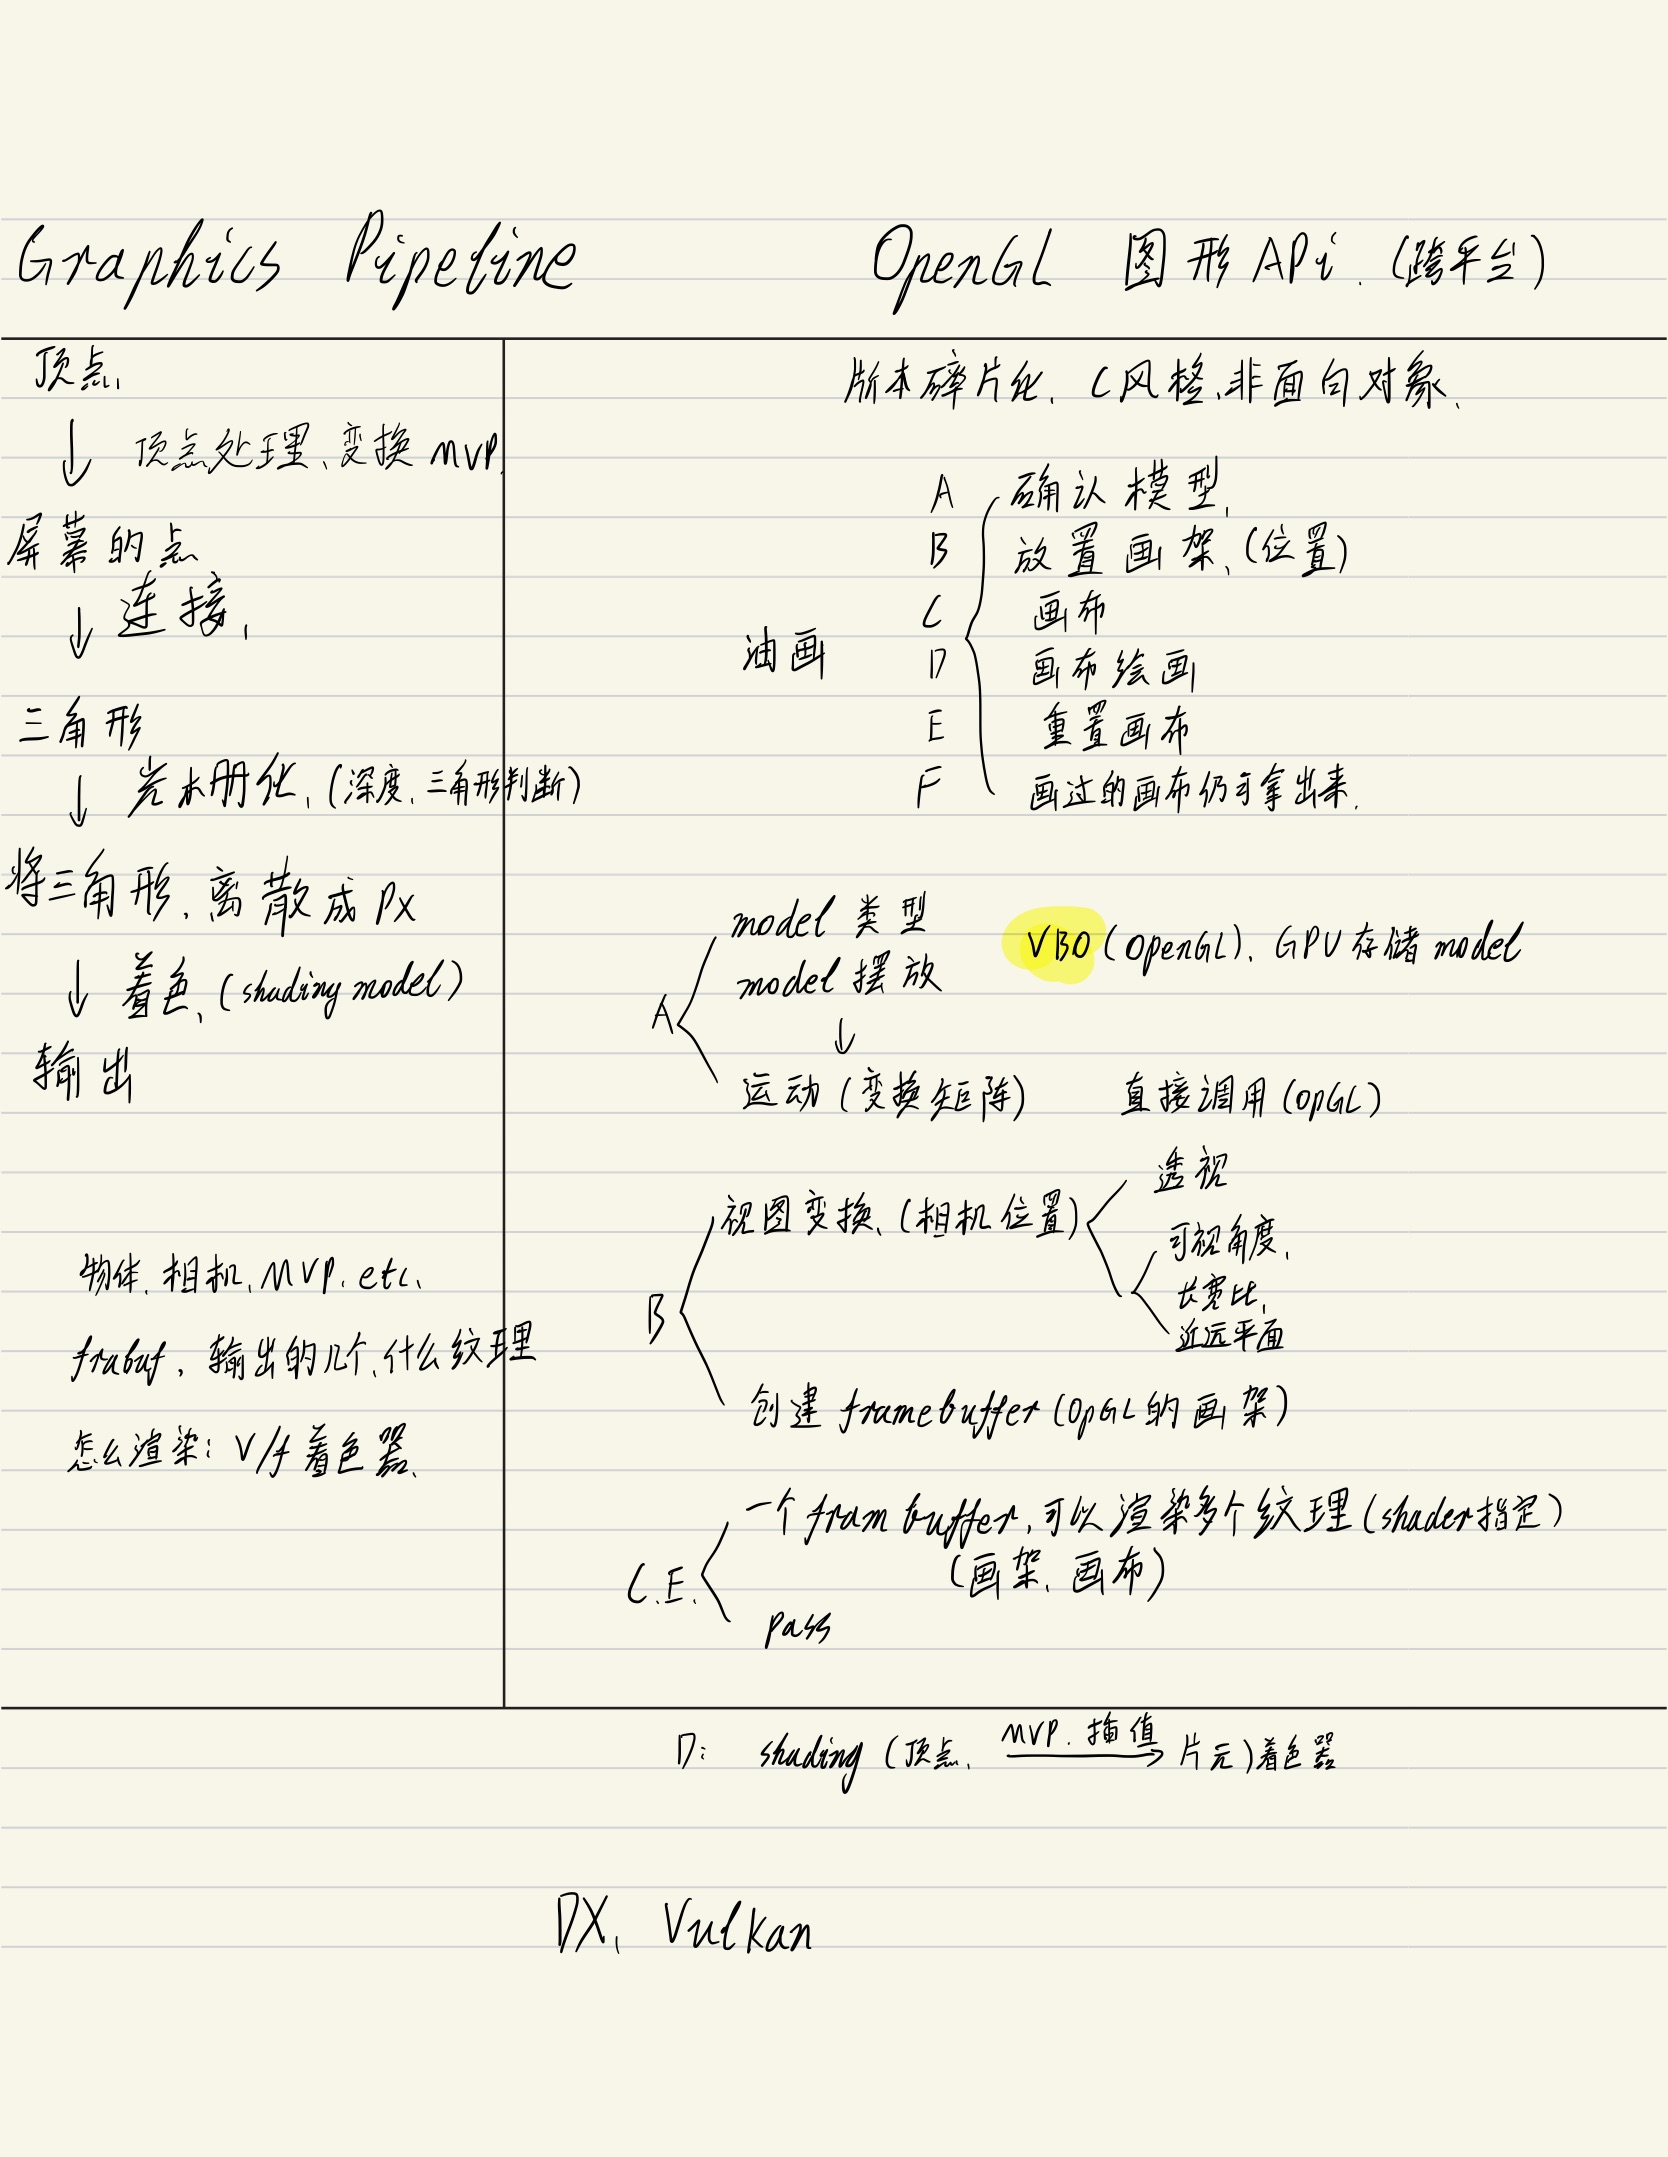 Graphics Pipeline
OpenGL 图形 APi.(跨平台)
顶点、
↓ 顶点处理、变换 MVP.
屏幕的点
↓ 连接、
三角形
↓ 光栅化、(深度、三角形判断)
将三角形、离散成 Px
↓ 着色、(shading model)
输出
物体、相机、MVP. etc.
frabuf, 输出的几个、什么纹理
怎么渲染: V/f 着色器、
版本碎片化、C风格、非面向对象、
油画
A 确认模型、
B 放置画架、(位置)
C 画布
D 画布绘画
E 重置画布
F 画过的画布仍可拿出来.
A
model 类型
VBO (OpenGL). GPU 存储 model
model 摆放
↓
运动 (变换矩阵) 直接调用 (OpGL)
B
视图变换、(相机位置)
透视
可视角度、
长宽比、
近远平面
创建 framebuffer (OpGL 的画架)
C.E.
一个 fram buffer, 可以渲染多个纹理 (shader 指定)
(画架、画布)
pass
D: shading (顶点、 MVP. 插值 → 片元) 着色器
DX、Vulkan